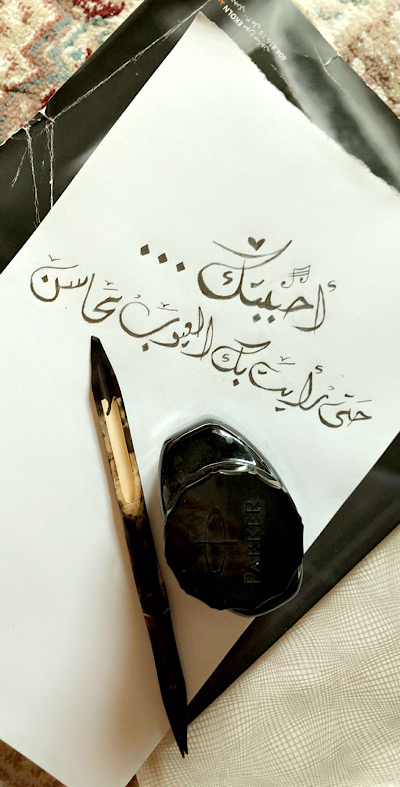 أحببتك ...
حتى رأيت بك العيوب محاسن
PARKER